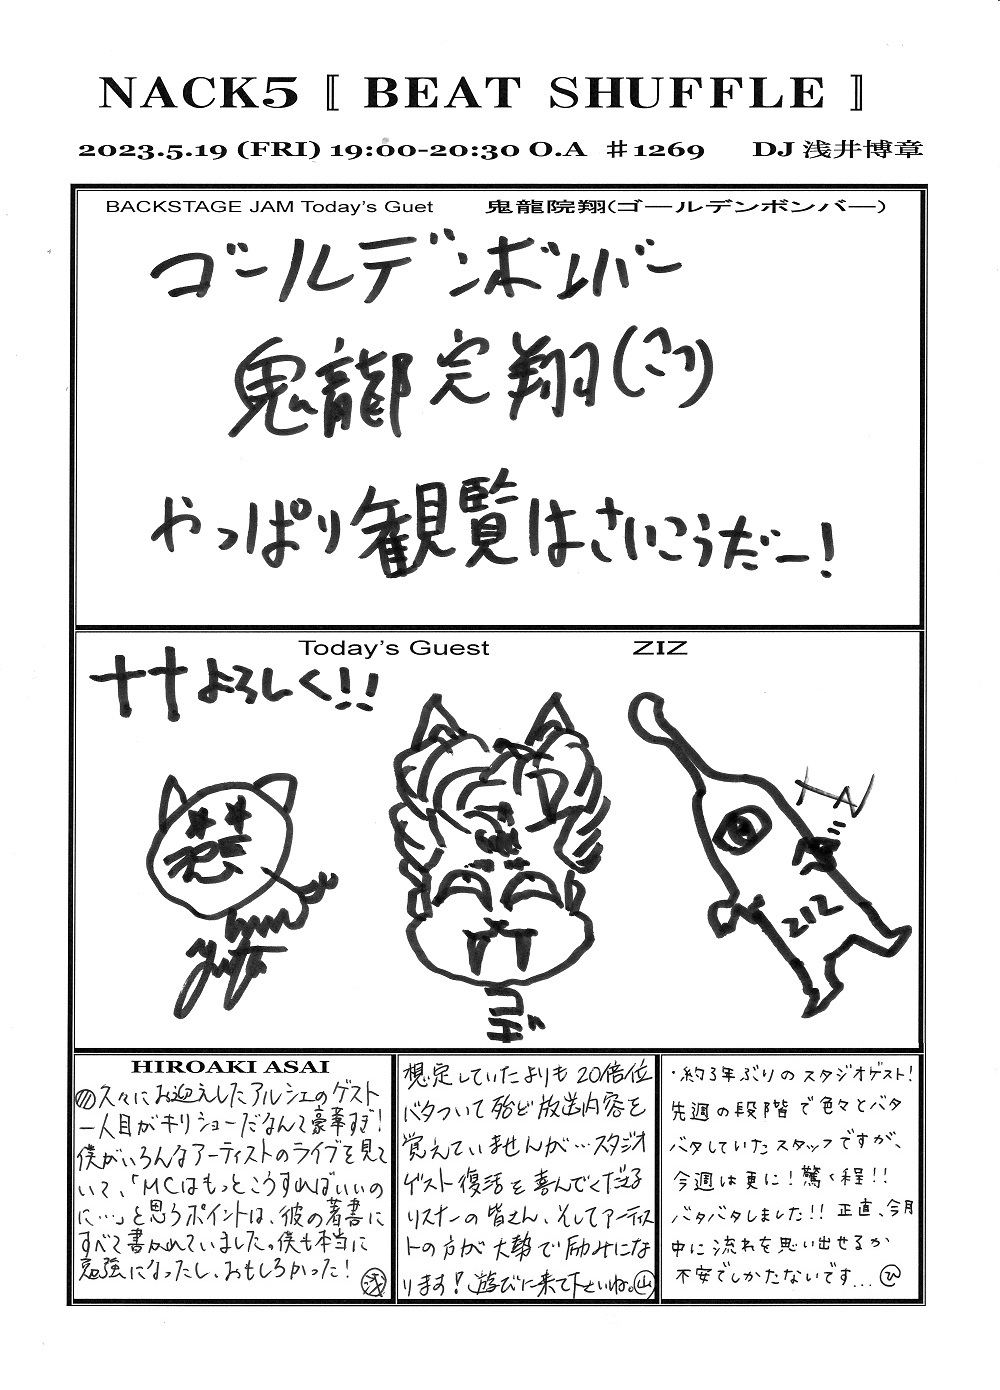 NACK5 〚 BEAT SHUFFLE 〛
2023.5.19 (FRI) 19:00-20:30 O.A ♯1269 DJ 浅井博章
BACKSTAGE JAM Today's Guet 鬼龍院翔(ゴールデンボンバー)
ゴールデンボンバー
鬼龍院翔(こり)
やっぱり観覧はさいこうだー!
Today's Guest ZIZ
十十よろしく!!
ZIZ
コデ
HIROAKI ASAI
久々にお迎えしたアルシェのゲスト
一人目がキリショーだなんて豪華すぎ!
僕がいろんなアーティストのライブを見て
いて、「MCはもっとこうすればいいの
に…」と思うポイントは、彼の著書に
すべて書かれていました。僕も本当に
勉強になったし、おもしろかった! 浅
想定していたよりも20倍位
バタついて殆ど放送内容を
覚えていませんが…スタジオ
ゲスト復活を喜んでくださる
リスナーの皆さん、そしてアーティス
トの方が大勢で励みにな
ります!遊びに来て下さいね。山
・約3年ぶりのスタジオゲスト!
先週の段階で色々とバタ
バタしていたスタッフですが、
今週は更に!驚く程!!
バタバタしました!!正直、今月
中に流れを思い出せるか
不安でしかたないです… ひ